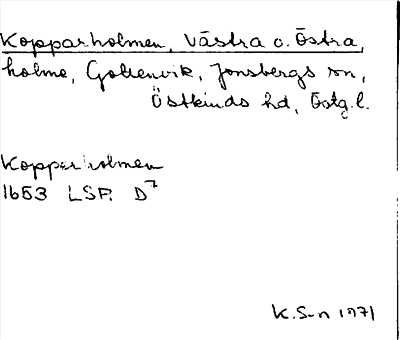 Kopparholmen, Västra o. Östra,
holme, Gottenvik, Jonsbergs sn,
Östkinds hd, Östg.l.
Kopperholmen
1653 LSP. D7
K.S-n 1971